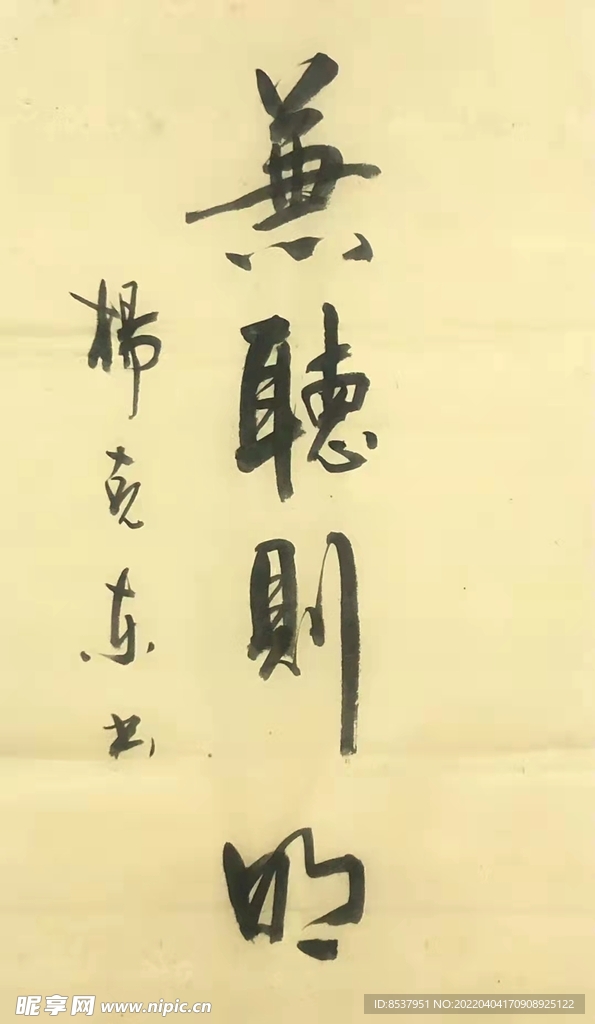 兼聽則明
楊克东书
昵享网 www.nipic.cn
ID:8537951 NO:20220404170908925122